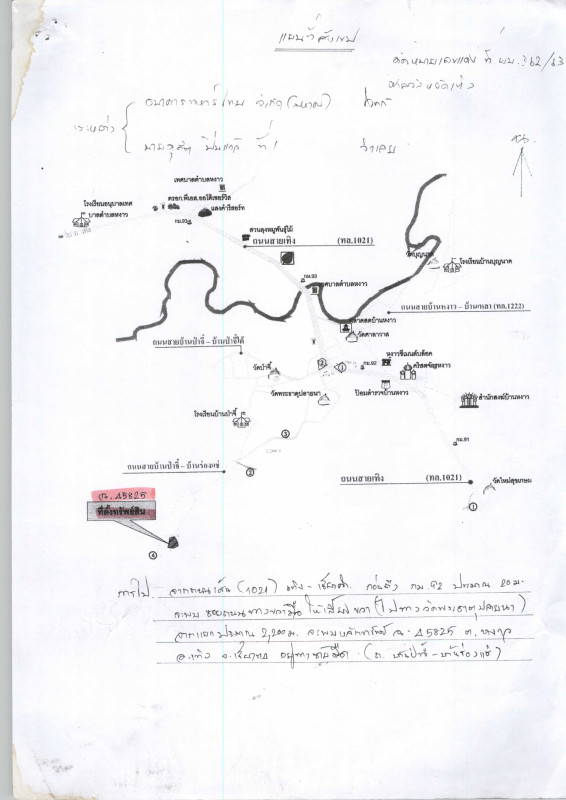 แผนที่สังเขป
คดีหมายเลขแดงที่ ผบ.362/63
ศาลจังหวัดเทิง
ระหว่าง
ธนาคารทหารไทย จำกัด (มหาชน) โจทก์
ที่ 1 จำเลย
เทศบาลตำบลหงาว
โรงเรียนอนุบาลเทศ
บาลตำบลหงาว
แสงคำรีสอร์ท
กม.93
สวนลุงหมูพันธุ์ไม้
ถนนสายเทิง (ทล.1021)
วัดบุญนาค
โรงเรียนบ้านบุญนาค
กม.93
เทศบาลตำบลหงาว
ถนนสายบ้านหงาว - บ้านเหล่า (ทล.1222)
ตลาดสดบ้านหงาว
วัดศาลาวาส
ถนนสายบ้านป่าจี้ - บ้านป่าจี้ใต้
หงาวซีเมนต์บล็อค
กม.92
วัดป่าจี้
คริสตจักรหงาว
วัดพระธาตุปลายนา
ป้อมตำรวจบ้านหงาว
สำนักสงฆ์บ้านหงาว
โรงเรียนบ้านป่าจี้
3
กม.91
ถนนสายบ้านป่าจี้ - บ้านร่องแช่
2
ถนนสายเทิง (ทล.1021)
วัดใหม่สุขเกษม
1
ฉ. 45825
ที่ตั้งทรัพย์สิน
4
การไป จากถนนเส้น (1021) เทิง - เชียงคำ ก่อนถึง กม.92 ประมาณ 20 ม.
จะพบซอยถนนทางขวามือ ให้เลี้ยวขวา (ไปทางวัดพระธาตุปลายนา)
จากแยกประมาณ 2,200 ม. จะพบหลักทรัพย์ ฉ. 45825 ต.หงาว
อ.เทิง จ.เชียงราย อยู่ทางซ้ายมือ (ถ. บ้านป่าจี้ - บ้านร่องแช่)